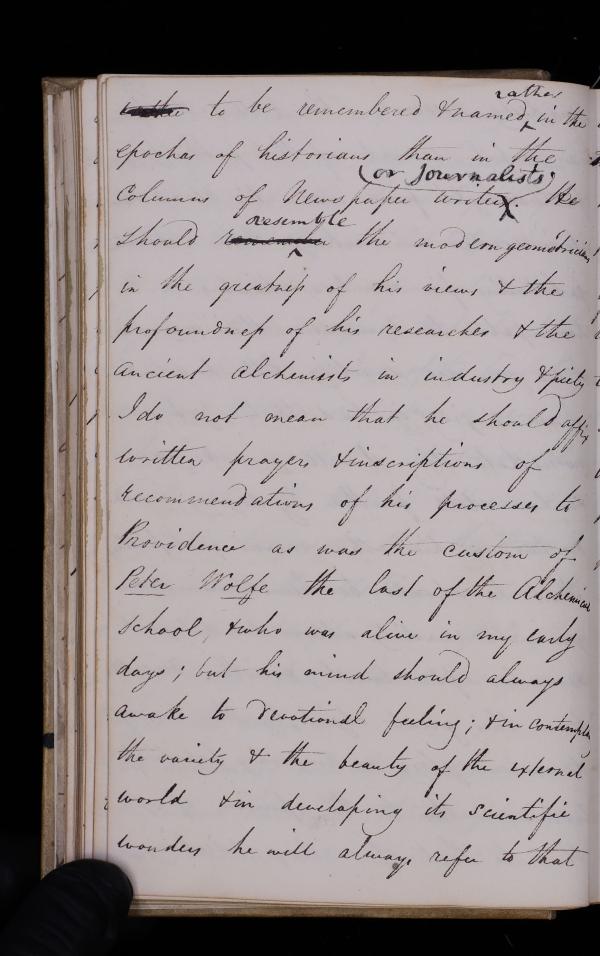 rather
to be remembered & named in the
epochas of historians than in the
(or Journalists;
columns of Newspaper writers. He
resemble
should remember the modern geometricians
in the greatness of his views & the
profoundness of his researches & the
ancient alchemists in industry & piety
I do not mean that he should affix
written prayers & inscriptions of
recommendations of his processes to
Providence as was the custom of
Peter Wolfe the last of the Alchemical
school, & who was alive in my early
days; but his mind should always
awake to devotional feeling; & in contempla
the variety & the beauty of the external
world & in developing its scientific
wonders he will always refer to that